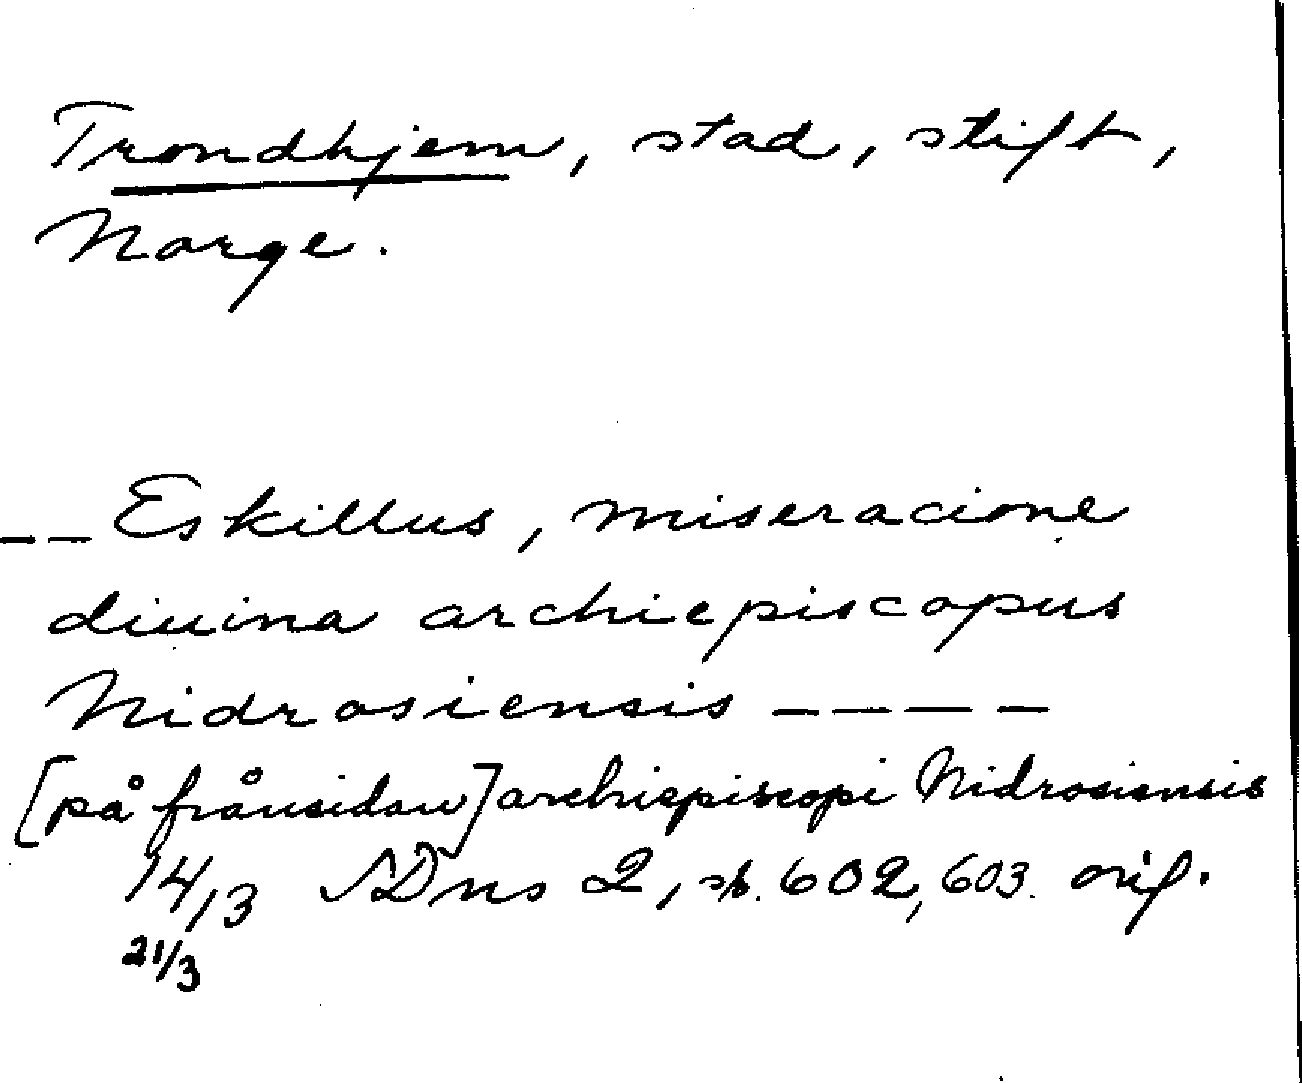 Trondhjem, stad, stift,
Norge.
-- Eskillus, miseracione
diuina archiepiscopus
Nidrosiensis ----
[på frånsidan] archiepiscopi Nidrosiensis
14/13 SDns 2, sp. 602, 603. orig.
21/3